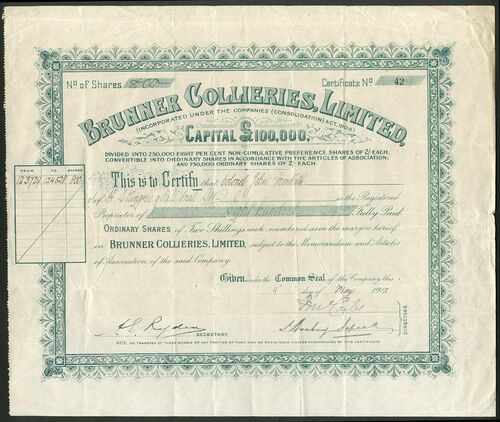 No. of Shares 800 Certificate No 42
BRUNNER COLLIERIES, LIMITED,
(INCORPORATED UNDER THE COMPANIES (CONSOLIDATION) ACT, 1908)
CAPITAL £100,000,
DIVIDED INTO 250,000 EIGHT PER CENT NON-CUMULATIVE PREFERENCE SHARES OF 2/- EACH,
CONVERTIBLE INTO ORDINARY SHARES IN ACCORDANCE WITH THE ARTICLES OF ASSOCIATION,
AND 750,000 ORDINARY SHARES OF 2/- EACH.
FROM TO SHARES
123729 124528 800
This is to Certify that Colonel John
of is the Registered
Proprietor of Eight Hundred Fully Paid
ORDINARY SHARES of Two Shillings each numbered as in the margin hereof,
in BRUNNER COLLIERIES, LIMITED, subject to the Memorandum and Articles
of Association of the said Company.
Given under the Common Seal of the Company this
9 day of May 1912
DIRECTORS.
SECRETARY.
NOTE. NO TRANSFER OF THESE SHARES OR ANY PORTION OF THEM CAN BE REGISTERED UNLESS ACCOMPANIED BY THIS CERTIFICATE.